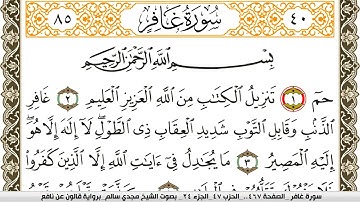 ٤٠ سُورَةُ غَافِرٍ ٨٥
بِسْمِ اللَّهِ الرَّحْمَٰنِ الرَّحِيمِ
حمٓ ١ تَنزِيلُ الْكِتَابِ مِنَ اللَّهِ الْعَزِيزِ الْعَلِيمِ ٢ غَافِرِ
الذَّنۢبِ وَقَابِلِ التَّوْبِ شَدِيدِ الْعِقَابِ ذِي الطَّوْلِ لَا إِلَٰهَ إِلَّا هُوَ
إِلَيْهِ الْمَصِيرُ ٣ مَا يُجَٰدِلُ فِي ءَايَٰتِ اللَّهِ إِلَّا الَّذِينَ كَفَرُوا
سورة غافر _الصفحة ٤٦٧_ الحزب ٤٧_الجزء ٢٤ _ بصوت الشيخ مجدي سالم_ برواية قالون عن نافع